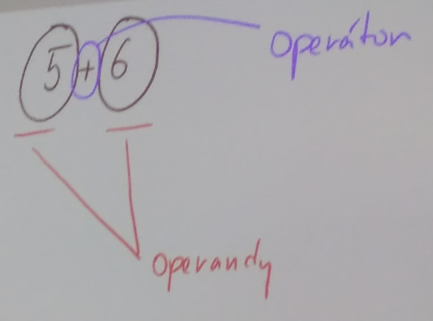 5+6
operátor
operandy